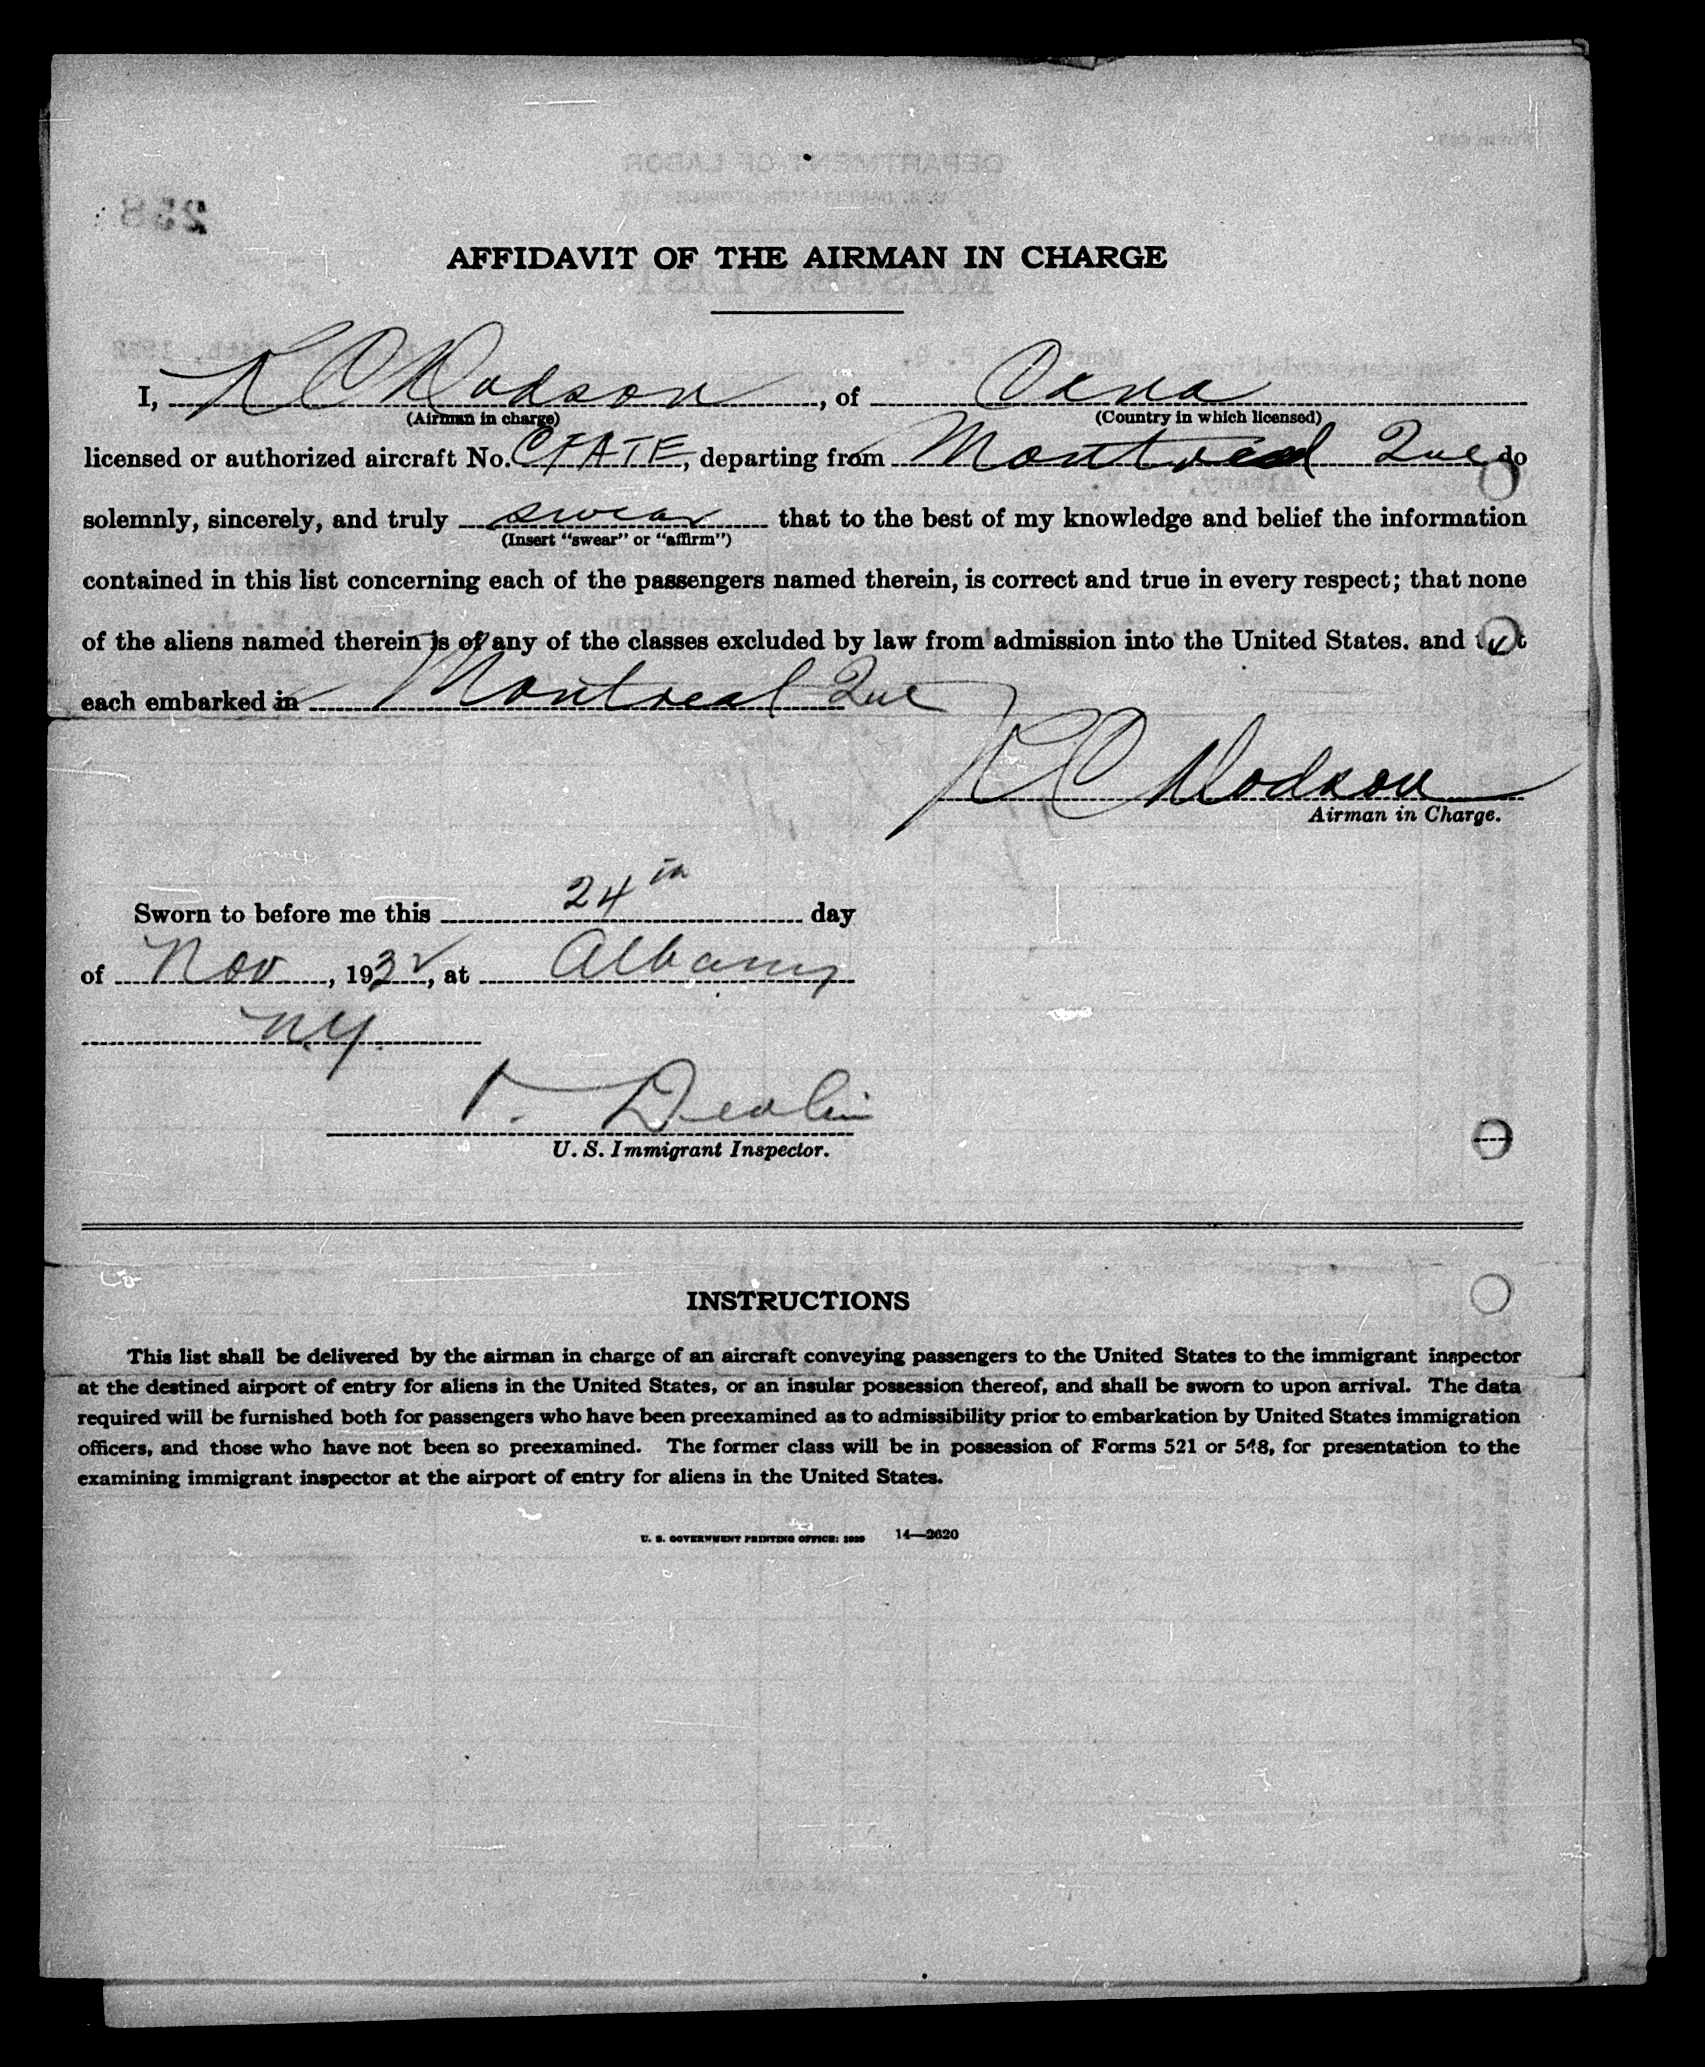 AFFIDAVIT OF THE AIRMAN IN CHARGE
I, R C Dodson, of Cana
(Airman in charge) (Country in which licensed)
licensed or authorized aircraft No. CFATE, departing from Montreal Que do
solemnly, sincerely, and truly swear that to the best of my knowledge and belief the information
(Insert "swear" or "affirm")
contained in this list concerning each of the passengers named therein, is correct and true in every respect; that none
of the aliens named therein is of any of the classes excluded by law from admission into the United States. and t t
each embarked in Montreal Que
R C Dodson
Airman in Charge.
Sworn to before me this 24th day
of Nov, 1932, at Albany
N.Y.
Devlin
U. S. Immigrant Inspector.
INSTRUCTIONS
This list shall be delivered by the airman in charge of an aircraft conveying passengers to the United States to the immigrant inspector
at the destined airport of entry for aliens in the United States, or an insular possession thereof, and shall be sworn to upon arrival. The data
required will be furnished both for passengers who have been preexamined as to admissibility prior to embarkation by United States immigration
officers, and those who have not been so preexamined. The former class will be in possession of Forms 521 or 548, for presentation to the
examining immigrant inspector at the airport of entry for aliens in the United States.
U. S. GOVERNMENT PRINTING OFFICE: 1929 14—2620